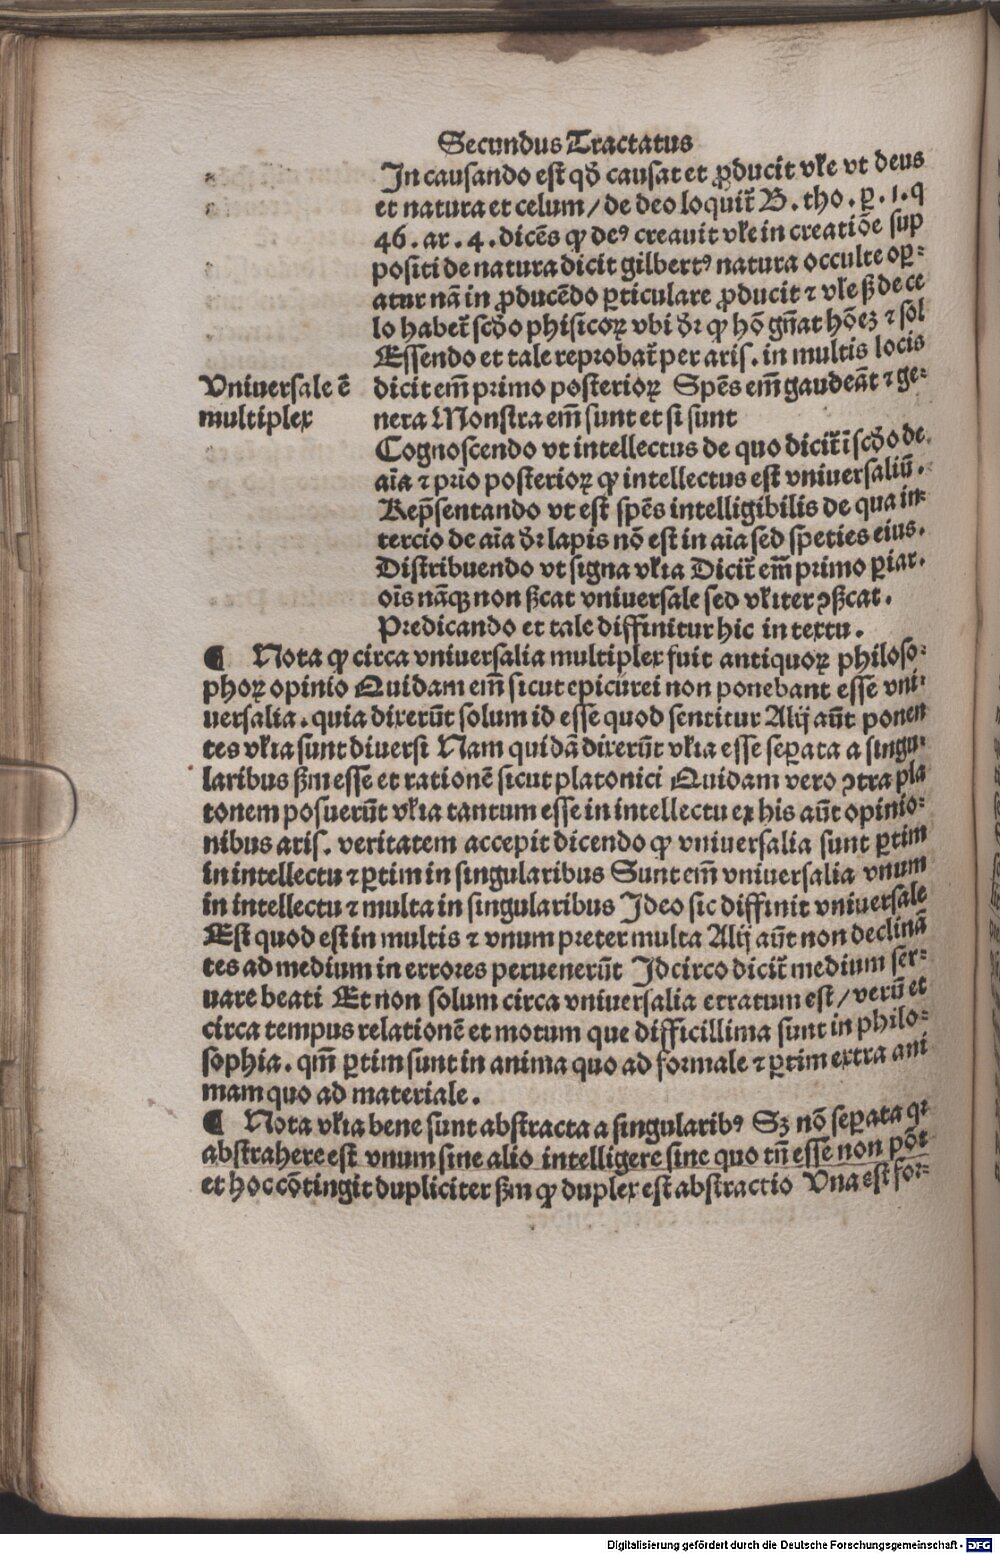 Secundus Tractatus
In causando est qđ causat et ꝓducit vle vt deus
et natura et celum / de deo loquit̃ B. tho. ꝑ. 1. q
46. ar. 4. dicẽs ꝙ deꝰ creauit vle in creatiõe sup
positi de natura dicit gilbertꝰ natura occulte oꝑ⸗
atur nã in ꝓducẽdo ꝑticulare ꝓducit ⁊ vle ß de ce
lo habet̃ scđo phisicoꝝ vbi dr̃ ꝙ hõ gñat hõeꝫ ⁊ sol
Essendo et tale reprobat̃ per aris. in multis locis
dicit em̃ primo posterioꝝ Spẽs em̃ gaudeãt ⁊ ge⸗
Vniuersale ẽ
multiplex
nera Monstra em̃ sunt et si sunt
Cognoscendo vt intellectus de quo dicit̃ ĩ scđo de
aĩa ⁊ prĩo posterioꝝ ꝙ intellectus est vniuersaliũ.
Rep̃sentando vt est spẽs intelligibilis de qua in
tercio de aĩa dr̃ lapis nõ est in aĩa sed speties eius.
Distribuendo vt signa vlia Dicit̃ em̃ primo ꝑiar.
oĩs nãqꝫ non ßcat vniuersale sed vliter ꝯßcat.
Predicando et tale diffinitur hic in textu.
¶ Nota ꝙ circa vniuersalia multiplex fuit antiquoꝝ philoso⸗
phoꝝ opinio Quidam em̃ sicut epicurei non ponebant esse vni⸗
uersalia. quia dixerũt solum id esse quod sentitur Alij aũt ponen
tes vlia sunt diuersi Nam quidã dixerũt vlia esse seꝑata a singu⸗
laribus ßm esse et rationẽ sicut platonici Quidam vero ꝯtra pla
tonem posuerũt vlia tantum esse in intellectu ex his aũt opinio⸗
nibus aris. veritatem accepit dicendo ꝙ vniuersalia sunt ꝑtim
in intellectu ⁊ ꝑtim in singularibus Sunt em̃ vniuersalia vnum
in intellectu ⁊ multa in singularibus Ideo sic diffinit vniuersale
Est quod est in multis ⁊ vnum preter multa Alij aũt non declinã
tes ad medium in errores peruenerũt Idcirco dicit̃ medium ser⸗
uare beati Et non solum circa vniuersalia erratum est / verũ et
circa tempus relationẽ et motum que difficillima sunt in philo⸗
sophia. qm̃ ꝑtim sunt in anima quo ad formale ⁊ ꝑtim extra ani
mam quo ad materiale.
¶ Nota vlia bene sunt abstracta a singularibꝰ Sꝫ nõ seꝑata qꝛ
abstrahere est vnum sine alio intelligere sine quo tñ esse non põt
et hoc cõtingit dupliciter ßm ꝙ duplex est abstractio Vna est for⸗
Digitalisierung gefördert durch die Deutsche Forschungsgemeinschaft - DFG